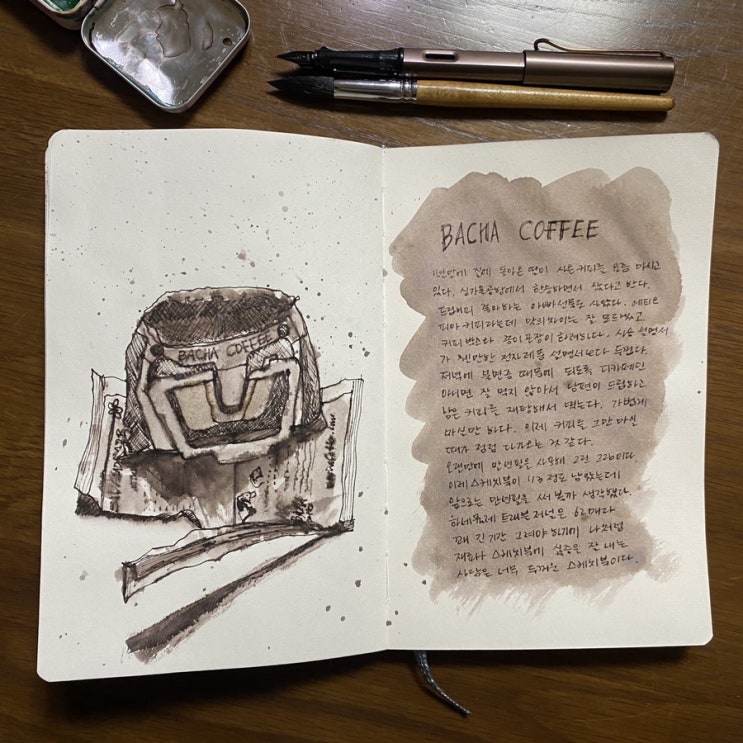 BACHA COFFEE
BACHA COFFEE
1년만에 집에 돌아온 딸이 사온 커피를 요즘 마시고
있다. 싱가폴공항에서 환승하면서 샀다고 한다.
드립커피 좋아하는 아빠선물로 사왔다. 에티오
피아 커피라는데 맛의 차이는 잘 모르겠고
커피 박스와 종이포장이 화려하다. 사용 설명서
가 웬만한 전자제품 설명서보다 두껍다.
저녁에 불면증 때문에 되도록 디카페인
아니면 잘 먹지 않아서 남편이 드립하고
남은 커피를 재탕해서 먹는다. 가볍게
마실만 하다. 이제 커피를 그만 마실
때가 점점 다가오는 것 같다.
오랜만에 만년필을 사용해 그린 그림이다.
이제 스케치북이 1/3 정도 남았는데
앞으로는 만년필로 써 볼까 생각했다.
하네뮬레 트래블저널은 62매라
꽤 긴 기간 그려야 하기에 나처럼
재료나 스케치북에 싫증을 잘 내는
사람은 너무 두꺼운 스케치북이다.